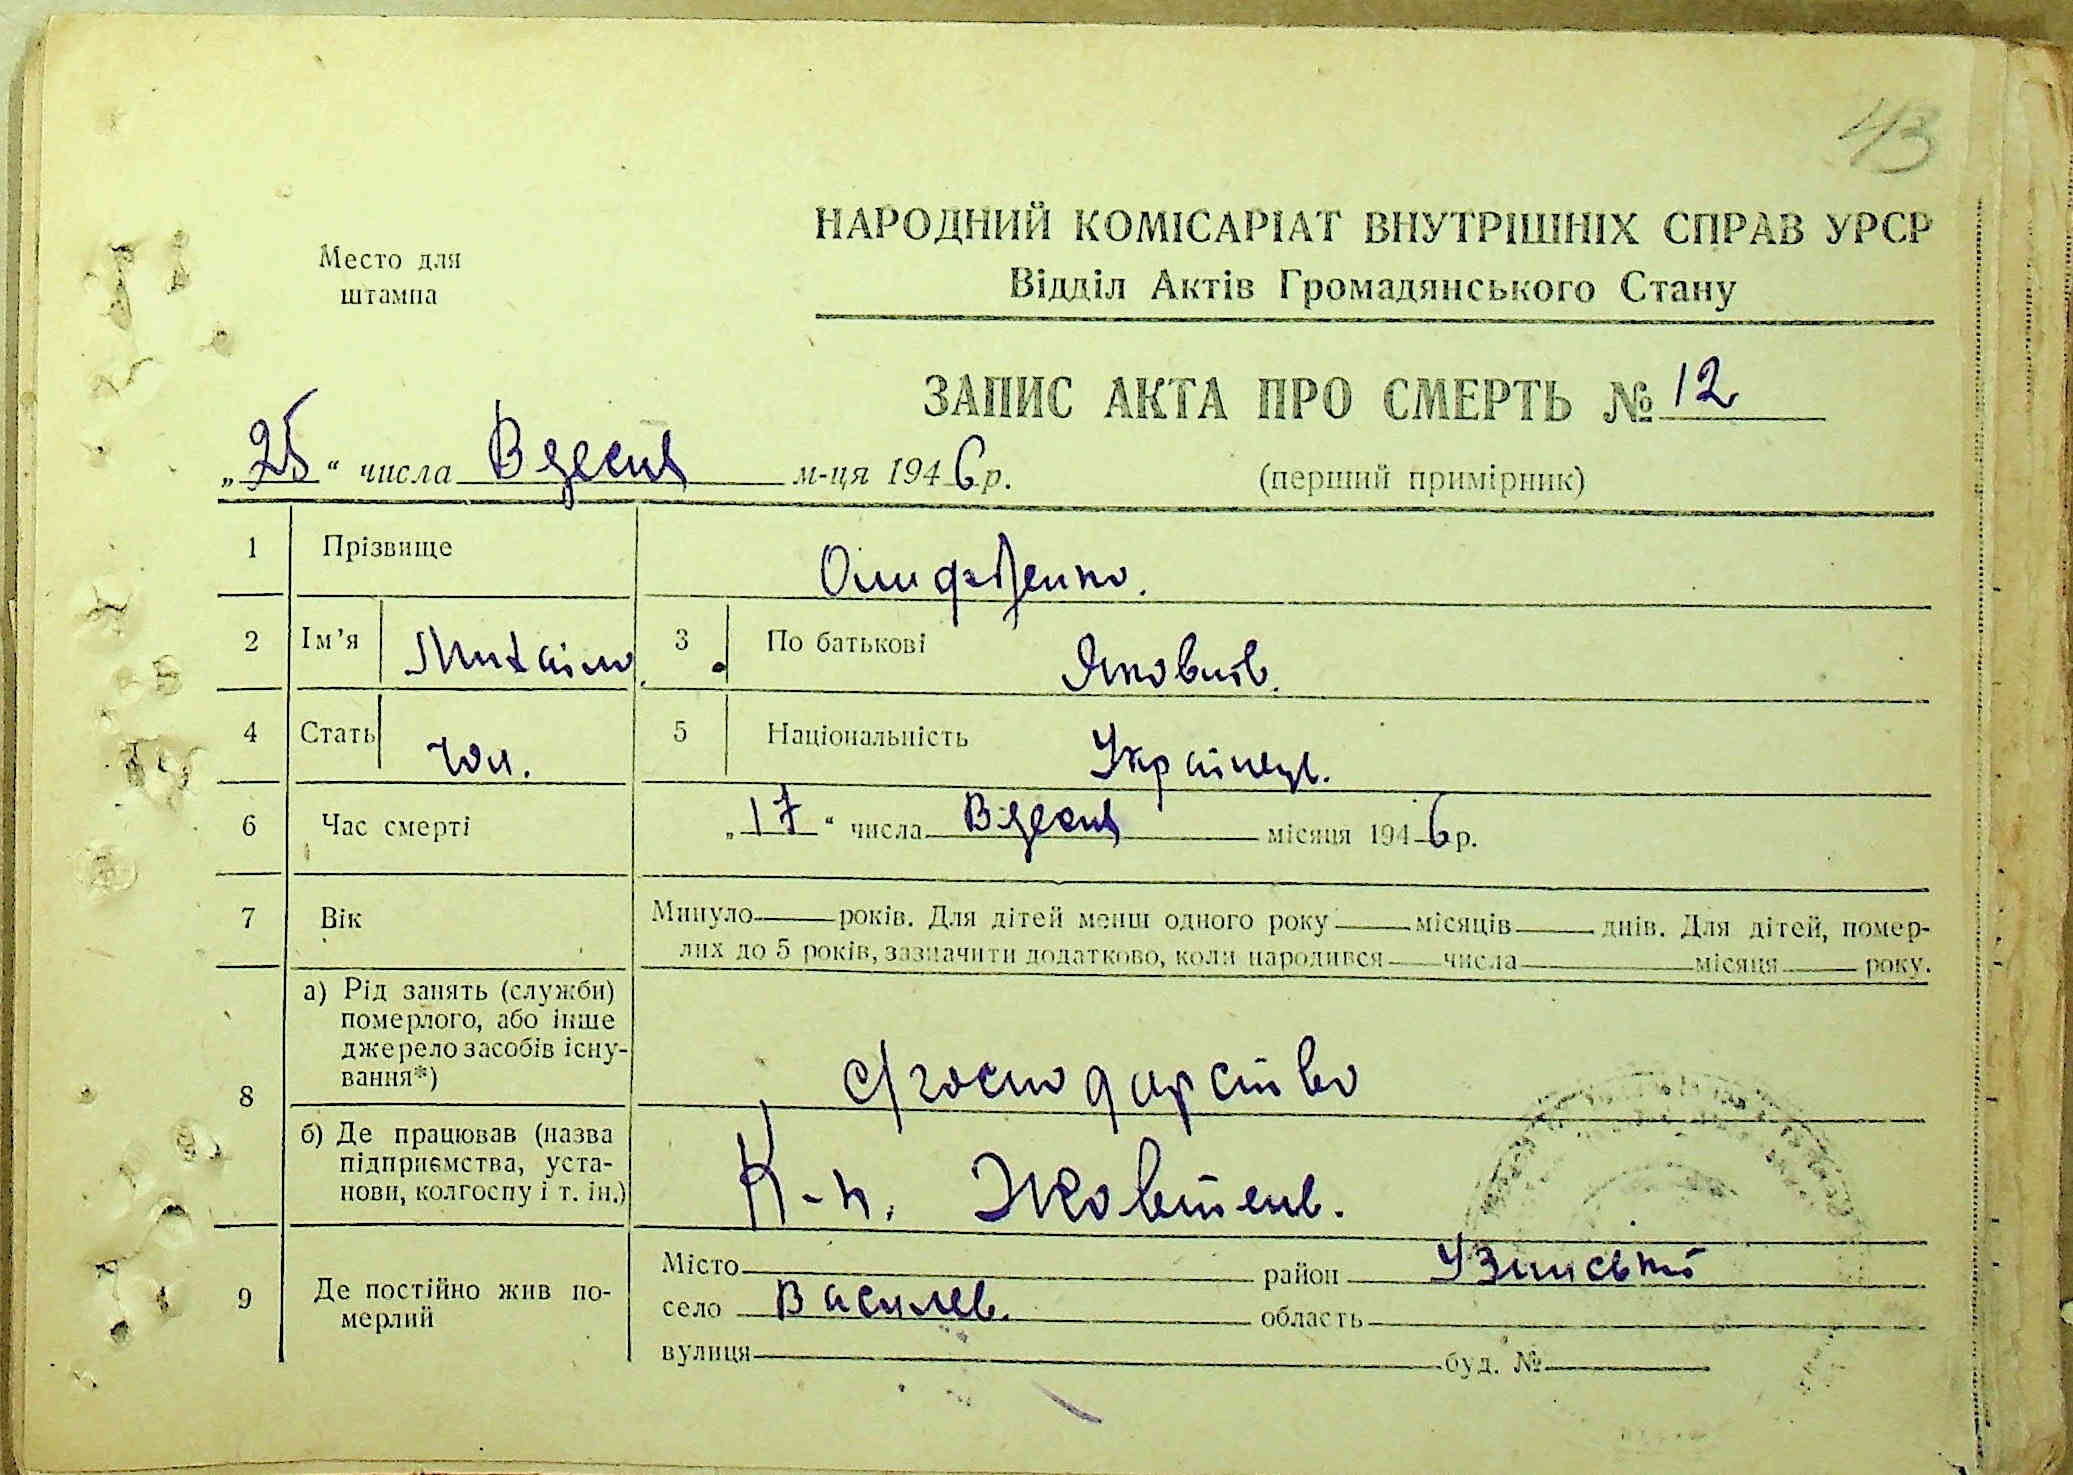 43
Место для
штампа
НАРОДНИЙ КОМІСАРІАТ ВНУТРІШНІХ СПРАВ УРСР
Відділ Актів Громадянського Стану
ЗАПИС АКТА ПРО СМЕРТЬ № 12
„25“ числа Вересня м-ця 1946 р.
(перший примірник)
1 Прізвище
2 Ім'я Михайло. 3 По батькові Яковлів.
4 Стать чол. 5 Національність Українець.
6 Час смерті „17“ числа Вересня місяця 1946 р.
7 Вік Минуло років. Для дітей менш одного року місяців днів. Для дітей, помер-
лих до 5 років, зазначити додатково, коли народився числа місяця року.
8 а) Рід занять (служби)
померлого, або інше
джерело засобів існу-
вання*)
с/господарство
б) Де працював (назва
підприємства, уста-
нови, колгоспу і т. ін.)
К-п. Жовтень.
9 Де постійно жив по-
мерлий
Місто район Узинській
село Василев. область
вулиця буд. №